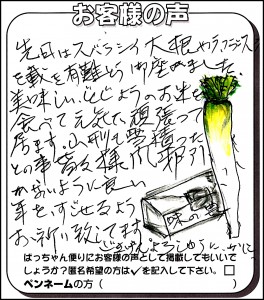 お客様の声
先日はスバラシイ大根やラ・フランス
を戴き有難とう御座いました。
美味しいどじょうのお米を
食べて元気に頑張って
居ます。山形も雪積った
との事
かないように良い
年をすごせるよう
お祈り致してます
味の
ぱっちゃん便りにお客様の声として掲載してもいいで
しょうか?匿名希望の方は✓を記入して下さい。□
ペンネームの方( )